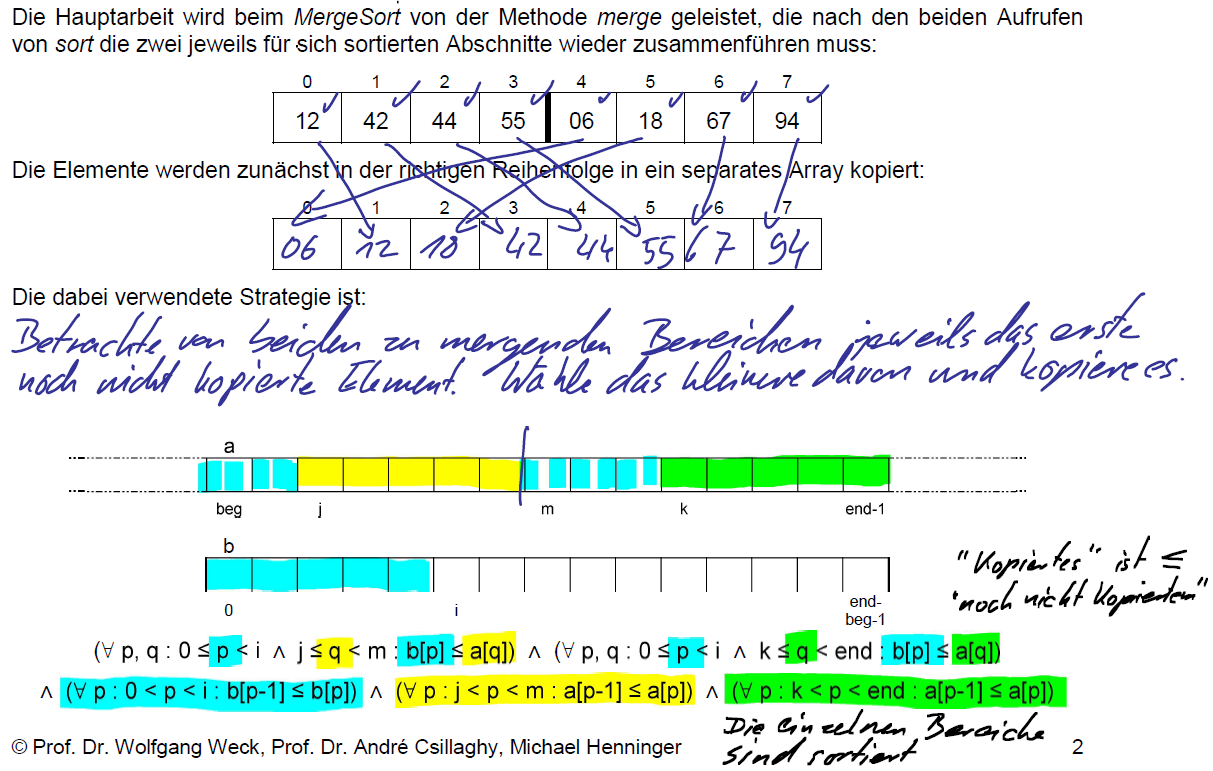 Die Hauptarbeit wird beim MergeSort von der Methode merge geleistet, die nach den beiden Aufrufen
von sort die zwei jeweils für sich sortierten Abschnitte wieder zusammenführen muss:
0 1 2 3 4 5 6 7
12 42 44 55 06 18 67 94
Die Elemente werden zunächst in der richtigen Reihenfolge in ein separates Array kopiert:
0 1 2 3 4 5 6 7
06 12 18 42 44 55 67 94
Die dabei verwendete Strategie ist:
Betrachte von beiden zu mergenden Bereichen jeweils das erste
noch nicht kopierte Element. Wähle das kleinere davon und kopiere es.
a
beg j m k end-1
b
0 i end-
beg-1
"Kopiertes" ist ≤
"noch nicht Kopiertem"
(∀ p, q : 0 ≤ p < i ∧ j ≤ q < m : b[p] ≤ a[q]) ∧ (∀ p, q : 0 ≤ p < i ∧ k ≤ q < end : b[p] ≤ a[q])
∧ (∀ p : 0 < p < i : b[p-1] ≤ b[p]) ∧ (∀ p : j < p < m : a[p-1] ≤ a[p]) ∧ (∀ p : k < p < end : a[p-1] ≤ a[p])
Die einzelnen Bereiche
sind sortiert
© Prof. Dr. Wolfgang Weck, Prof. Dr. André Csillaghy, Michael Henninger 2